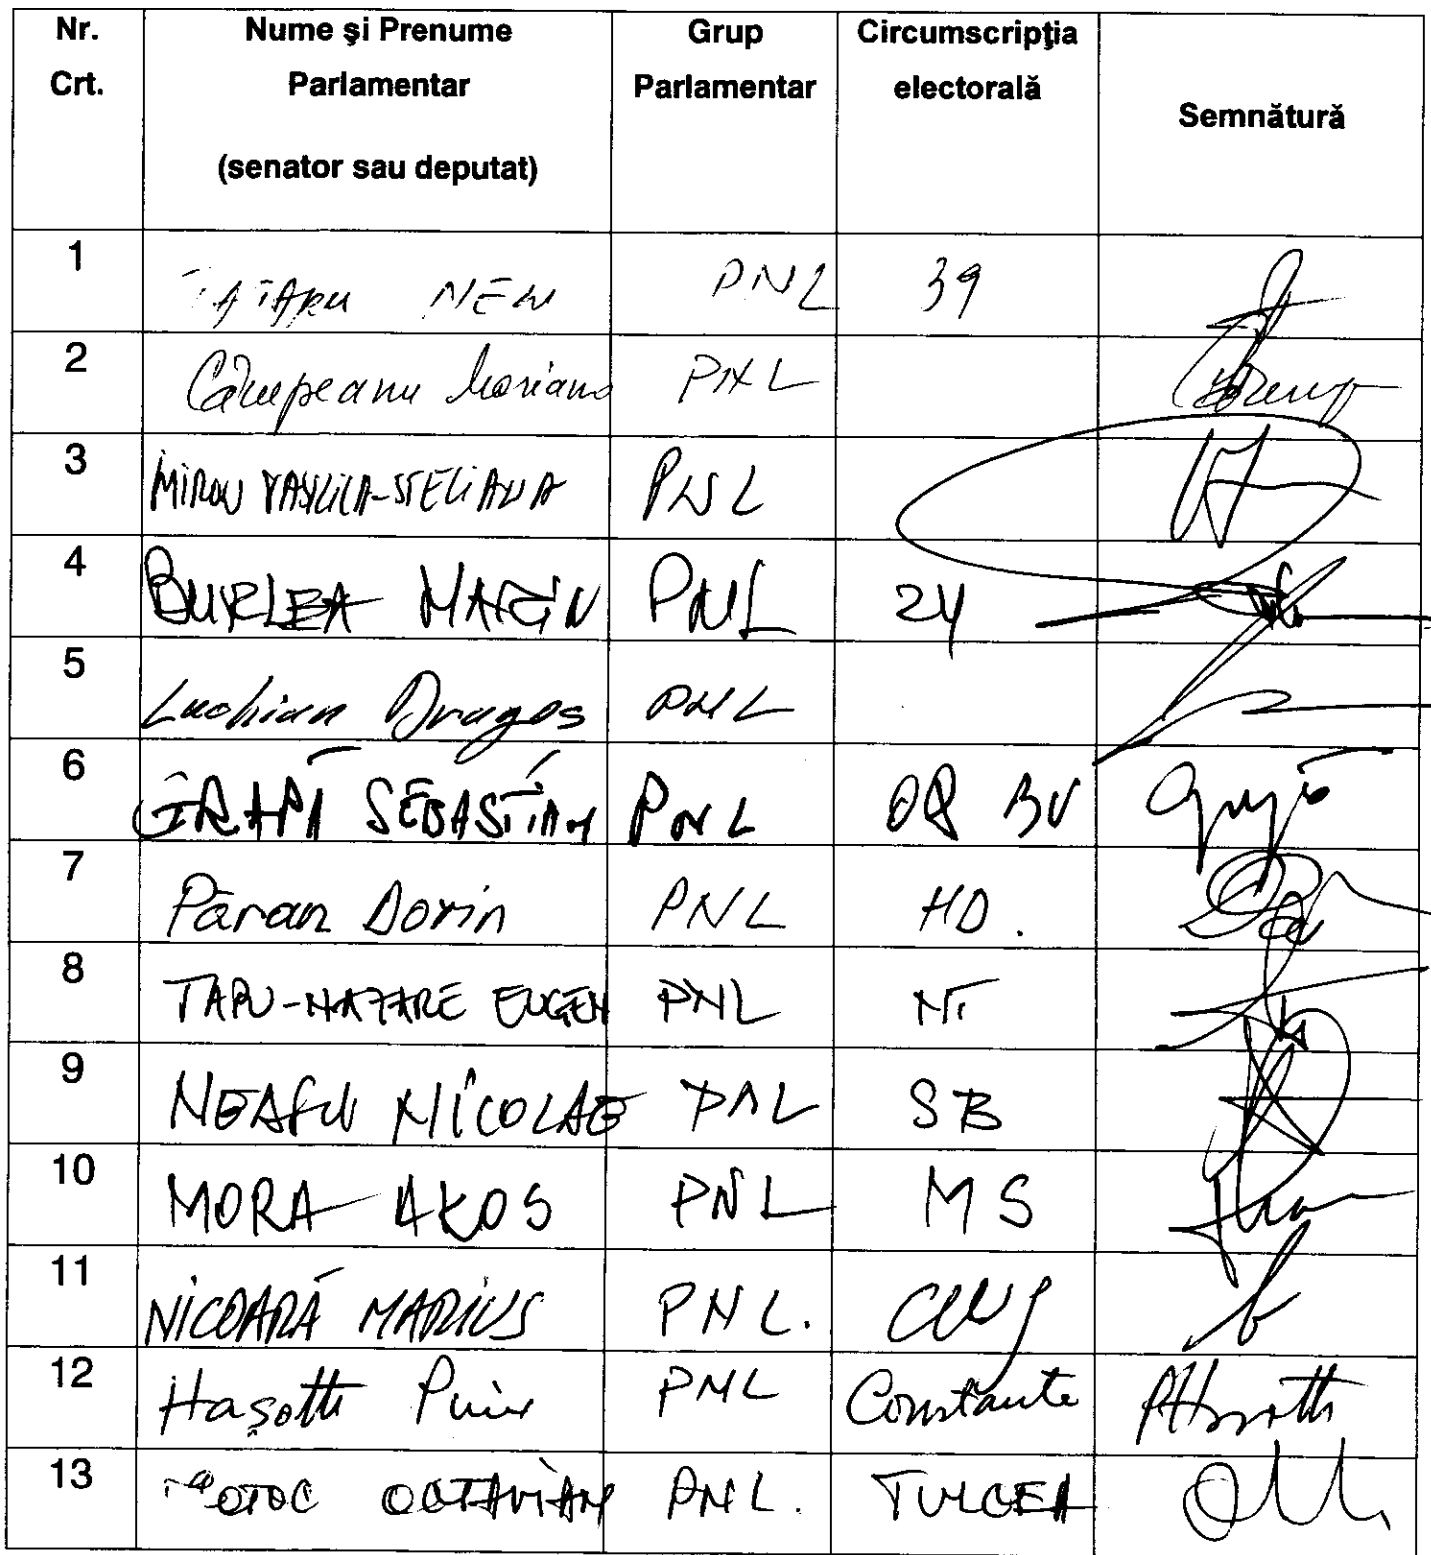 Nr. Crt. Nume şi Prenume Parlamentar (senator sau deputat) Grup Parlamentar Circumscripţia electorală Semnătură
1 TĂTARU NELU PNL 39
2 Câmpeanu Mariana PNL
3 MIRON VASILICA-STELIANA PNL
4 BURLEA MARIN PNL 24
5 Luchian Dragoş PNL
6 GRAPĂ SEBASTIAN PNL 08 BV
7 Păran Dorin PNL HD.
8 TAPU-NAZARE EUGEN PNL NT
9 NEAGU NICOLAE PNL SB
10 MORA AKOS PNL MS
11 NICOARĂ MARIUS PNL. CLUJ
12 Haşotti Puiu PNL Constanta
13 MOTOC OCTAVIAN PNL. TULCEA